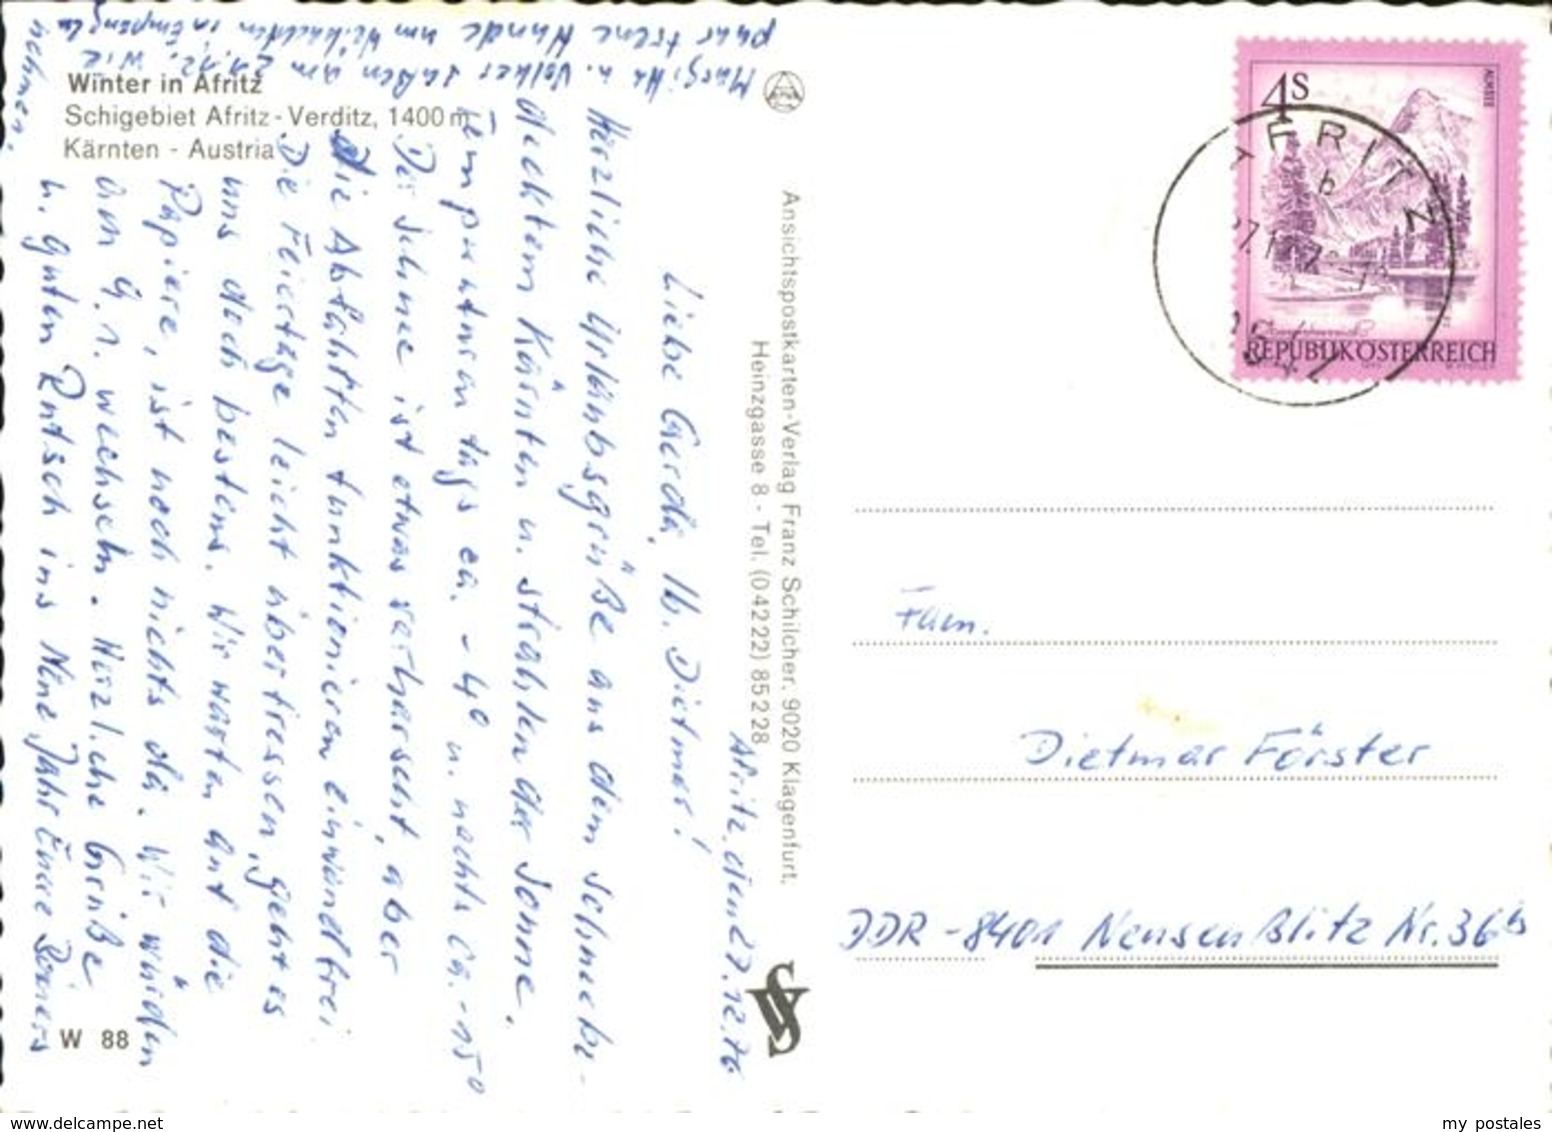 Winter in Afritz
Schigebiet Afritz - Verditz, 1400 m
Kärnten - Austria
Afritz, am 27.12.76
Liebe Gerda, lb. Dietmar!
Herzliche Urlaubsgrüße aus dem schneebe-
decktem Kärnten u. strahlender Sonne.
Temperaturen tags ca. -4° u. nachts ca. -15°
Der Schnee ist etwas verharscht, aber
die Abfahrten funktionieren einwandfrei.
Die Feiertage leicht überfressen, geht es
uns doch bestens. Wir warten auf die
Papiere, ist noch nichts da. Wir würden
am 9.1. wechseln. Herzliche Grüße
u. guten Rutsch ins Neue Jahr Eure
Margitta u. Volker saßen am 24.12. wie
paar treue Hunde um Weihnachten in Empfang zu
nehmen.
W 88
Ansichtspostkarten-Verlag Franz Schilcher, 9020 Klagenfurt,
Heinzgasse 8 - Tel. (04222) 85228
VS
4S
ALMSEE
REPUBLIK ÖSTERREICH
AFRITZ
b
Fam.
Dietmar Förster
DDR - 8401 Neusenßlitz Nr. 36b
my postales
delcampe.net